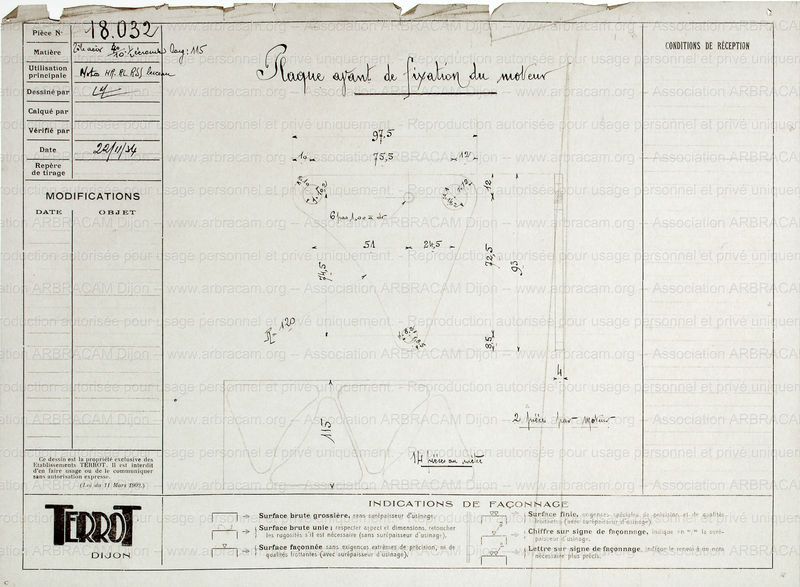 Pièce N° 18.032
Matière
Utilisation principale
Dessiné par
Calqué par
Vérifié par
Date 22/11/34
Repère de tirage
MODIFICATIONS
DATE OBJET
Plaque avant de fixation du moteur
CONDITIONS DE RÉCEPTION
97,5
10 75,5 12
12
51 24,5
74,5
72,5
93
8,5
R = 120
4
115
2 pièces par moteur
14 pièces au mètre
Ce dessin est la propriété exclusive des
Etablissements TERROT. Il est interdit
d'en faire usage ou de le communiquer
sans autorisation expresse.
(Loi du 11 Mars 1902.)
TERROT
DIJON
INDICATIONS DE FAÇONNAGE
Surface brute grossière, sans surépaisseur d'usinage.
Surface brute unie; respecter aspect et dimensions, retoucher
les rugosités s'il est nécessaire (sans surépaisseur d'usinage).
Surface façonnée sans exigences extrêmes de précision, ni de
qualités frottantes (avec surépaisseur d'usinage).
Surface finie, exigences spéciales de précision et de qualités
frottantes (avec surépaisseur d'usinage).
Chiffre sur signe de façonnage, indique en m/m la surépaisseur d'usinage.
Lettre sur signe de façonnage, indique le renvoi à une note
nécessaire plus précis.
www.arbracam.org – Association ARBRACAM Dijon – Reproduction autorisée pour usage personnel et privé uniquement.